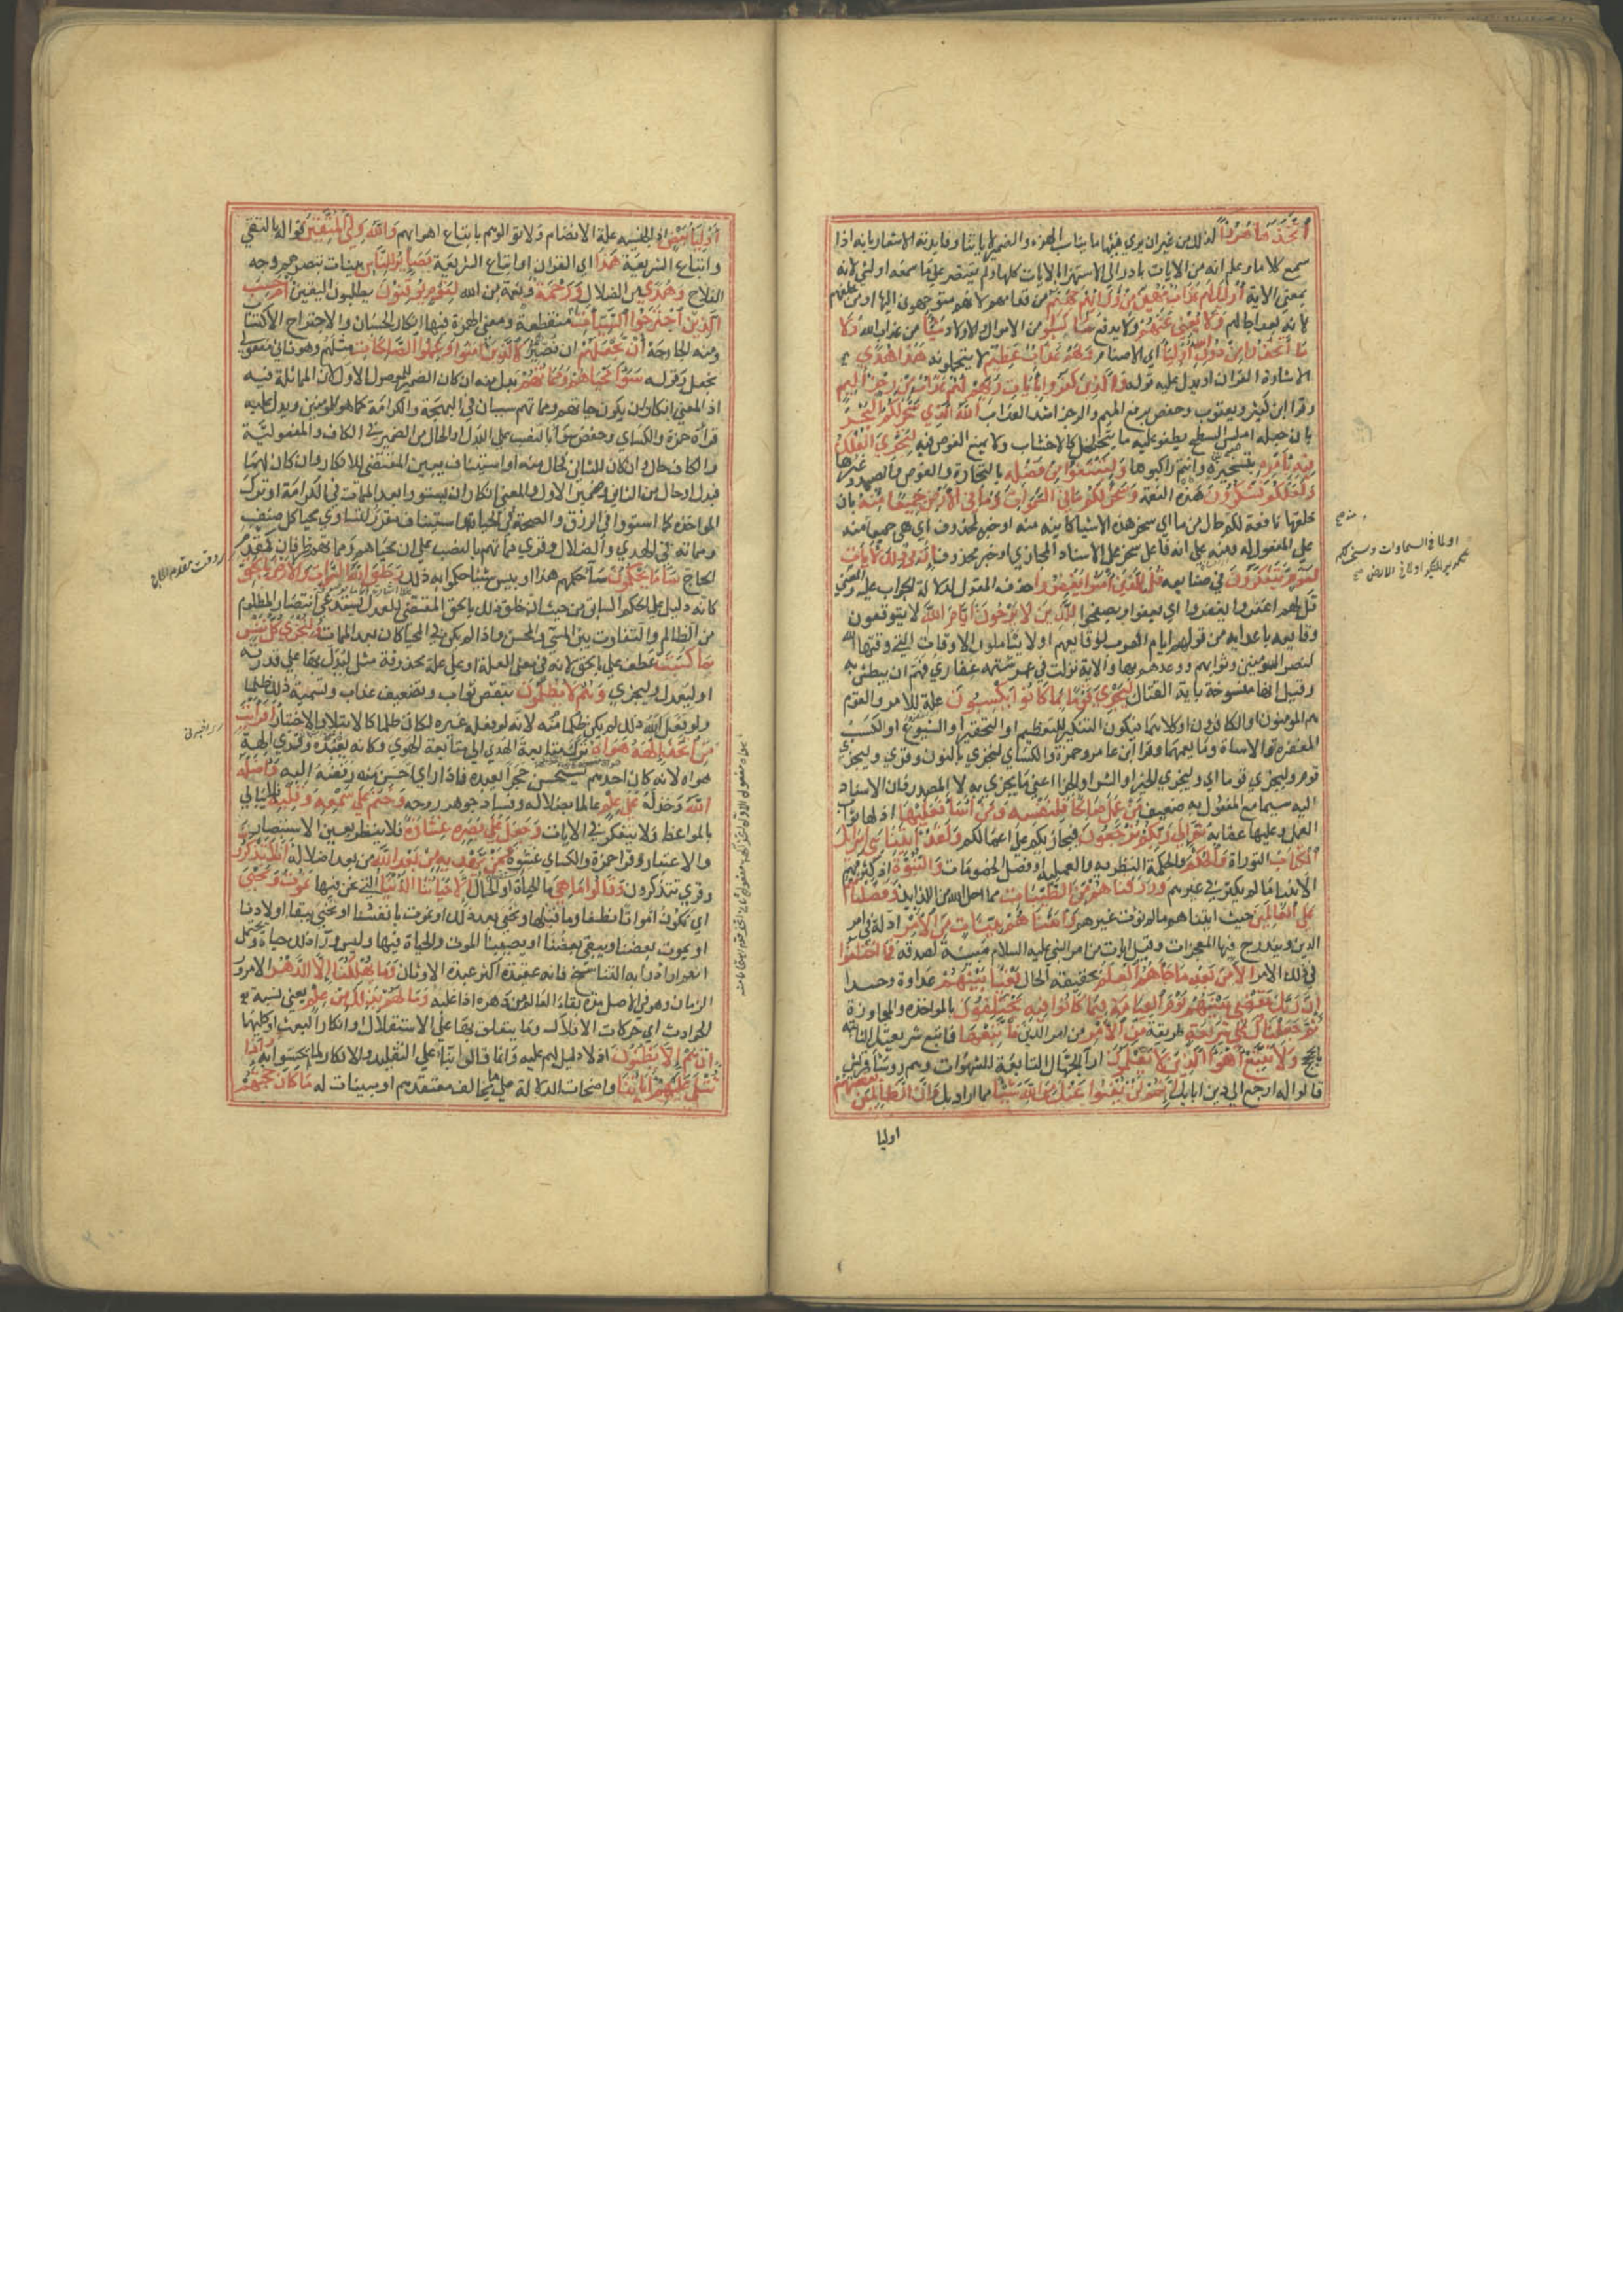 اتخذها هزوا لذلك من غير ان يري فيها ما يناسب الهزء والضمير لاياتنا وفايدته الاشعار بانه اذا
سمع كلاما وعلم انه من الايات بادر الي الاستهزا بالايات كلها ولم يقتصر علي ما سمعه او لشئ لانه
بمعني الاية اوليك لهم عذاب مهين من ورايهم جهنم من قدامهم لانهم متوجهون اليها او من خلفهم
لانه بعد اجالهم ولا يغني عنهم ولا يدفع ما كسبوا من الاموال والاولاد شيئا من عذاب الله ولا
ما اتخذوا من دون الله اوليا اي الاصنام ولهم عذاب عظيم لا يتحملونه هذا هدي
الاشارة الي القران ويدل عليه قوله والذين كفروا بايات ربهم لهم عذاب من رجز اليم
وقرا ابن كثير ويعقوب وحفص برفع الميم والرجز اشد العذاب الله الذي سخر لكم البحر
بان جعله املس السطح يطفو عليه ما يتخلخل كالاخشاب ولا يمنع الغوص فيه لتجري الفلك
فيه بامره بتسخيره وانتم راكبوها ولتبتغوا من فضله بالتجارة والغوص والصيد وغيرها
ولعلكم تشكرون هذه النعمة وسخر لكم ما في السموات وما في الارض جميعا منه بان
خلقها نافعة لكم حال من ما اي سخر هذه الاشيا كاينة منه او خبر لمحذوف اي هي جميعا منه
علي المفعول له ومنه علي انه فاعل سخر علي الاسناد المجازي او خبر محذوف ان في ذلك لايات
لقوم يتفكرون في صنايعه قل للذين امنوا يغفروا حذف المقول لدلالة الجواب عليه والمعني
قل لهم اغفروا يغفروا اي يعفوا ويصفحوا للذين لا يرجون ايام الله لا يتوقعون
وقايعه باعدايه من قولهم ايام العرب لوقايعهم او لا يأملون الاوقات التي وقتها الله
لنصر المومنين وثوابهم ووعدهم بها والاية نزلت في عمر شتمه غفاري فهم ان يبطش به
وقيل انها منسوخة باية القتال ليجزي قوما بما كانوا يكسبون علة للامر والقوم
هم المومنون او الكافرون او كلاهما فيكون التنكير للتعظيم او التحقير او الشيوع او الكسب
المغفرة او الاساة وما يعمهما وقرا ابن عامر وحمزة والكسائي لنجزي بالنون وقري ليجزي
قوم وليجزي قوما اي وليجزي الخير او الشر او الجزا اعني ما يجزي به لا المصدر فان الاسناد
اليه سيما مع المفعول به ضعيف من عمل صالحا فلنفسه ومن اسا فعليها اذ لها ثواب
العمل وعليها عقابه ثم الي ربكم ترجعون فيجازيكم علي اعمالكم ولقد اتينا بني اسرايل
الكتاب التوراة والحكم والحكمة النظرية والعملية او فصل الخصومات والنبوة اذ كثر فيهم
الانبيا ما لم يكثر في غيرهم ورزقناهم من الطيبات مما احل الله من اللذايذ وفضلناهم
علي العالمين حيث اتيناهم ما لم نؤت غيرهم واتيناهم بينات من الامر ادلة في امر
الدين ويندرج فيها المعجزات وقيل ايات من امر النبي عليه السلام مبينة لصدقه فما اختلفوا
في ذلك الامر الا من بعد ما جاهم العلم بحقيقة الحال بغيا بينهم عداوة وحسدا
ان ربك يقضي بينهم يوم القيامة فيما كانوا فيه يختلفون بالمواخذه والمجازاة
ثم جعلناك علي شريعة طريقة من الامر من امر الدين فاتبعها فاتبع شريعتك الثابتة
بالحجج ولا تتبع اهوا الذين لا يعلمون ارا الجهال التابعة للشهوات وهم روسا قريش
قالوا له ارجع الي دين ابايك انهم لن يغنوا عنك من الله شيئا مما اراد بك وان الظالمين بعضهم
اوليا
او لما في السماوات وسخر لكم
تكرير للتاكيد او لما في الارض صح
اوليا بعض اذ الجنسية علة الانضمام فلا توالهم باتباع اهوايهم والله ولي المتقين فواله بالتقي
واتباع الشريعة هذا اي القران او اتباع الشريعة بصاير للناس بينات تبصرهم وجه
الفلاح وهدي من الضلال ورحمة ونعمة من الله لقوم يوقنون يطلبون اليقين ام حسب
الذين اجترحوا السيئات ام منقطعة ومعني الهمزة فيها انكار الحسبان والاجتراح الاكتساب
ومنه الجارحة ان نجعلهم ان نصيرهم كالذين امنوا وعملوا الصالحات مثلهم وهو ثاني مفعولي
نجعل وقوله سوا محياهم ومماتهم بدل منه ان كان الضمير للموصول الاول لان المماثلة فيه
اذ المعني انكار ان يكون حياتهم ومماتهم سيان في البهجة والكرامة كما هو للمومنين ويدل عليه
قراة حمزة والكسائي وحفص سوا بالنصب علي البدل او الحال من الضمير في الكاف والمفعولية
والكاف حال وان كان للثاني فحال منه او استيناف يبين المقتضي للانكار وان كان لهما
فبدل او حال من الثاني وضمير الاول والمعني انكار ان يستووا بعد الممات في الكرامة او ترك
المواخذه كما استووا في الرزق والصحة في الحياة او استيناف مقرر لتساوي محيا كل صنف
ومماته في الهدي والضلال وقري مماتهم بالنصب علي ان محياهم ومماتهم ظرفان كمقدم
الحاج سا ما يحكمون سا حكمهم هذا او بيس شيئا حكموا به ذلك وخلق الله السموات والارض بالحق
كانه دليل علي الحكم السابق من حيث ان خلق ذلك بالحق المقتضي للعدل يستدعي انتصار المظلوم
من الظالم والتفاوت بين المسيء والمحسن واذا لم يكن في المحيا كان بعد الممات ولتجزي كل نفس
بما كسبت عطف علي بالحق لانه في معني العلة او علي علة محذوفة مثل ليدل بها علي قدرته
او ليعدل وليجزي وهم لا يظلمون بنقص ثواب وتضعيف عذاب وتسمية ذلك ظلما
ولو فعله الله ذلك لم يكن ظلما منه لانه لو فعله غيره لكان ظلما كالابتلاء والاختبار افرايت
من اتخذ الهه هواه ترك متابعة الهدي الي متابعة الهوي وكانه يعبده وقري الهة
هواه لانه كان احدهم يستحسن حجرا يعبده فاذا راي احسن منه رفضه اليه واضله
الله وخذله علي علم عالما بضلاله وفساد جوهر روحه وختم علي سمعه وقلبه فلا يبالي
بالمواعظ ولا يتفكر في الايات وجعل علي بصره غشاوة فلا ينظر بعين الاستبصار
والاعتبار وقرا حمزة والكسائي غشوة فمن يهديه من بعد الله من بعد اضلاله افلا تذكرون
وقري تتذكرون وقالوا ما هي ما الحياة او الحال الا حياتنا الدنيا التي نحن فيها نموت ونحيي
اي نكون امواتا نطفا وما قبلها ونحيي بعد ذلك او نموت بانفسنا ونحيي ببقا اولادنا
او يموت بعضنا ويبقي بعضنا او يصيبنا الموت والحياة فيها وليس ورا ذلك حياة ويحتمل
انهم ارادوا به التناسخ فانه عقيدة اكثر عبدة الاوثان وما يهلكنا الا الدهر الا مرور
الزمان وهو في الاصل مدة بقاء العالم من دهره اذا غلبه وما لهم بذلك من علم يعني نسبة
الحوادث الي حركات الافلاك وما يتعلق بها علي الاستقلال او انكار البعث او كليهما
ان هم الا يظنون اذ لا دليل لهم عليه وانما قالوا بناء علي التقليد والانكار لما لم يحسوا به واذا
تتلي عليهم اياتنا واضحات الدلالة علي ما يخالف معتقدهم او مبينات له ما كان حجتهم